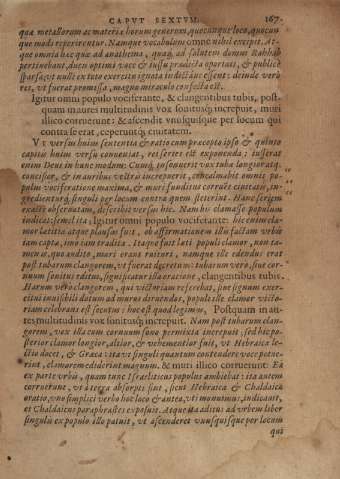 CAPVT SEXTVM. 167.
quæ metallorum ac materiæ horum generum, quocunque loco, quocun-
que modo reperirentur. Namque vocabulum omne nihil excipit. At-
que omnia hæc quæ ad anathema, quæq́; ad salutem domus Rahhab
pertinebant, ducis optimi voce & iussu prædicta oportuit, & publicè
sparsa, vt nulli ex toto exercitu ignota indictáue essent: deinde verò
res, vt fuerat promissa, magno miraculo confecta est.
Igitur omni populo vociferante, & clangentibus tubis, post-
quam in aures multitudinis vox sonitusq; increpuit, muri
illico corruerunt: & ascendit vnusquisque per locum qui
contra se erat, ceperuntq; ciuitatem.
VT versus huius sententia & ratio cum præcepto ipso & quinto
capitis huius versu conueniat, res serie est exponenda; iusserat
enim Deus in hunc modum: Cumq́; insonuerit vox tubæ longior atq́;
concisior, & in auribus vestris increpuerit, conclamabit omnis po-
pulus vociferatione maxima, & muri funditus corruent ciuitatis, in-
gredienturq́; singuli per locum contra quem steterint. Hanc seriem
exactè obseruatam, describit versus hic. Nam bis clamasse populum
indicat; semel ita, Igitur omni populo vociferante: hic enim cla-
mor lætitiæ atque plausus fuit, ob affirmationem illius factam vrbis
iam captæ, imò iam traditæ. Itaque sunt lati populi clamor, non ta-
men ac, quando ito, muri erant ruituri, namque ille edendus erat
post tubarum clangorem, vt fuerat decretum: tubarum verò, siue cor-
nuum sonitus editus, significatur illa oratione, clangentibus tubis.
Harum verò clangorem, qui victoriam referebat, siue signum exer-
citui inuisibili datum ad muros diruendos, populi ille clamor victo-
riam celebrans est secutus: hoc est quod legimus, Postquam in au-
res multitudinis vox sonitusq; increpuit. Nam post tubarum clan-
gorem, vox illa cum cornuum sono permixta increpuit, sed hic po-
sterior clamor longior, altior, & vehementior fuit, vt Hebraica le-
ctio docet, & Græca vt à singulis quantum contendere voce potue-
rint, clamarem ediderint magnum. & muri illico corruerunt: Ea
ex parte vrbis, quam tunc Israeliticus populus ambiebat: ita autem
corruerunt, vt à terra absorpti sint, sicut Hebraica & Chaldaica
oratio, vno simplici verbo hoc loco & antea, vti monuimus, indicant,
et Chaldaicus paraphrastes exposuit. Atque ita aditus ad vrbem liber
singulis ex populo illo patuit, vt ascenderet vnusquisque per locum
qui